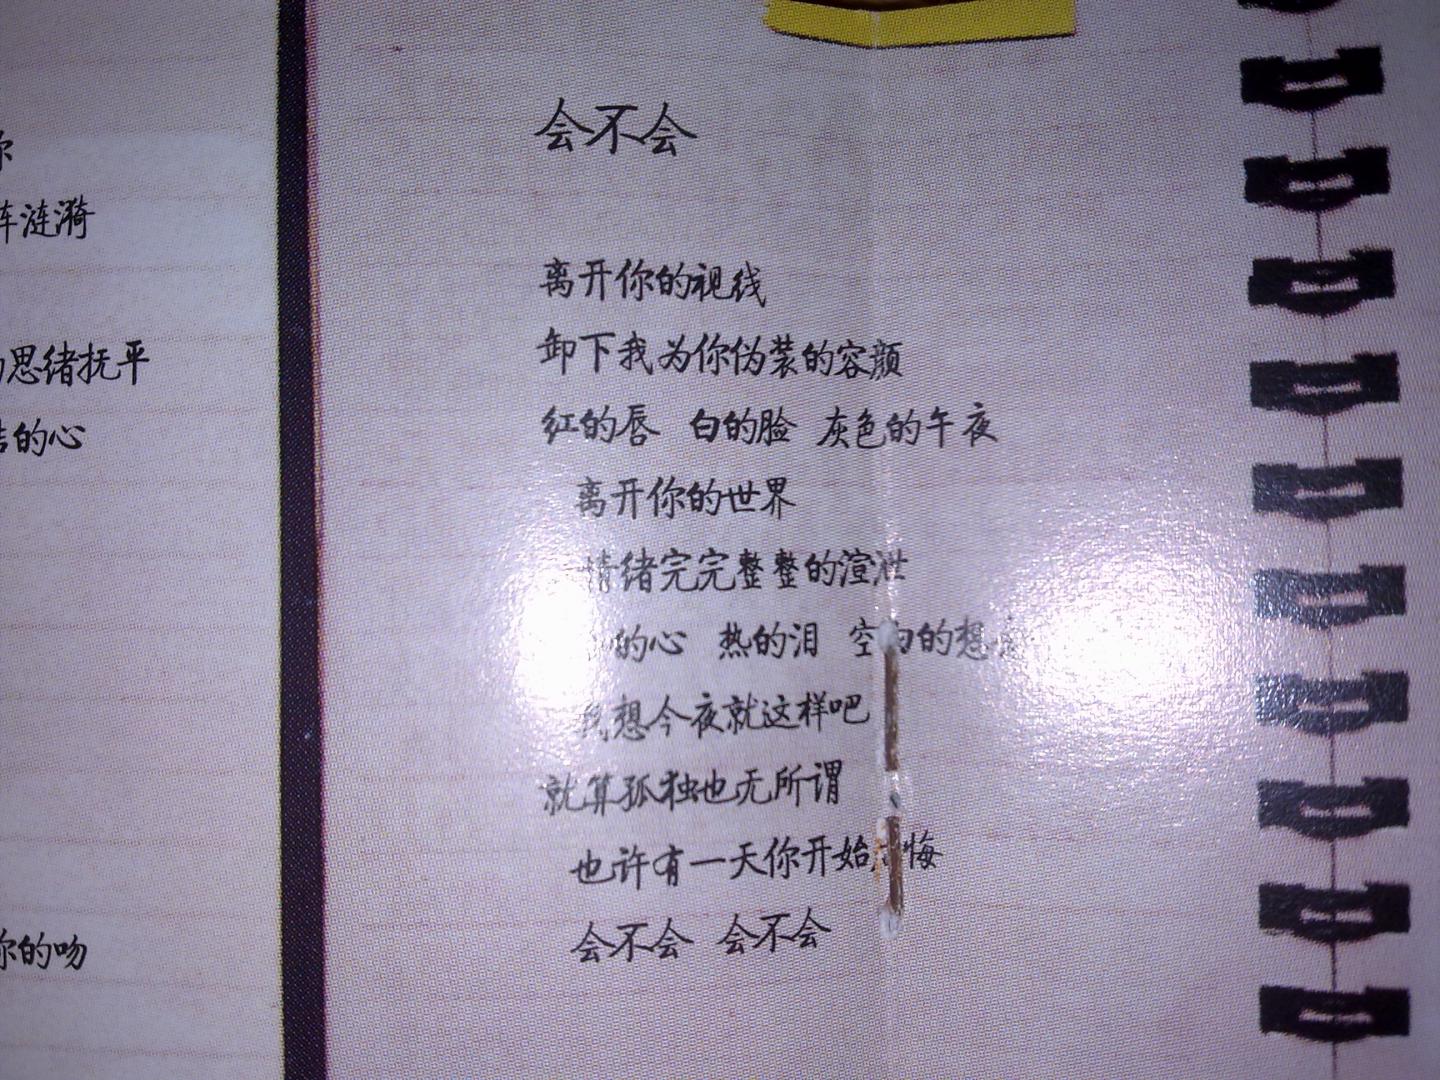 你
涟漪
思绪抚平
的心
你的吻
会不会
离开你的视线
卸下我为你伪装的容颜
红的唇 白的脸 灰色的午夜
离开你的世界
情绪完完整整的渲泄
的心 热的泪 空白的想
我想今夜就这样吧
就算孤独也无所谓
也许有一天你开始 悔
会不会 会不会